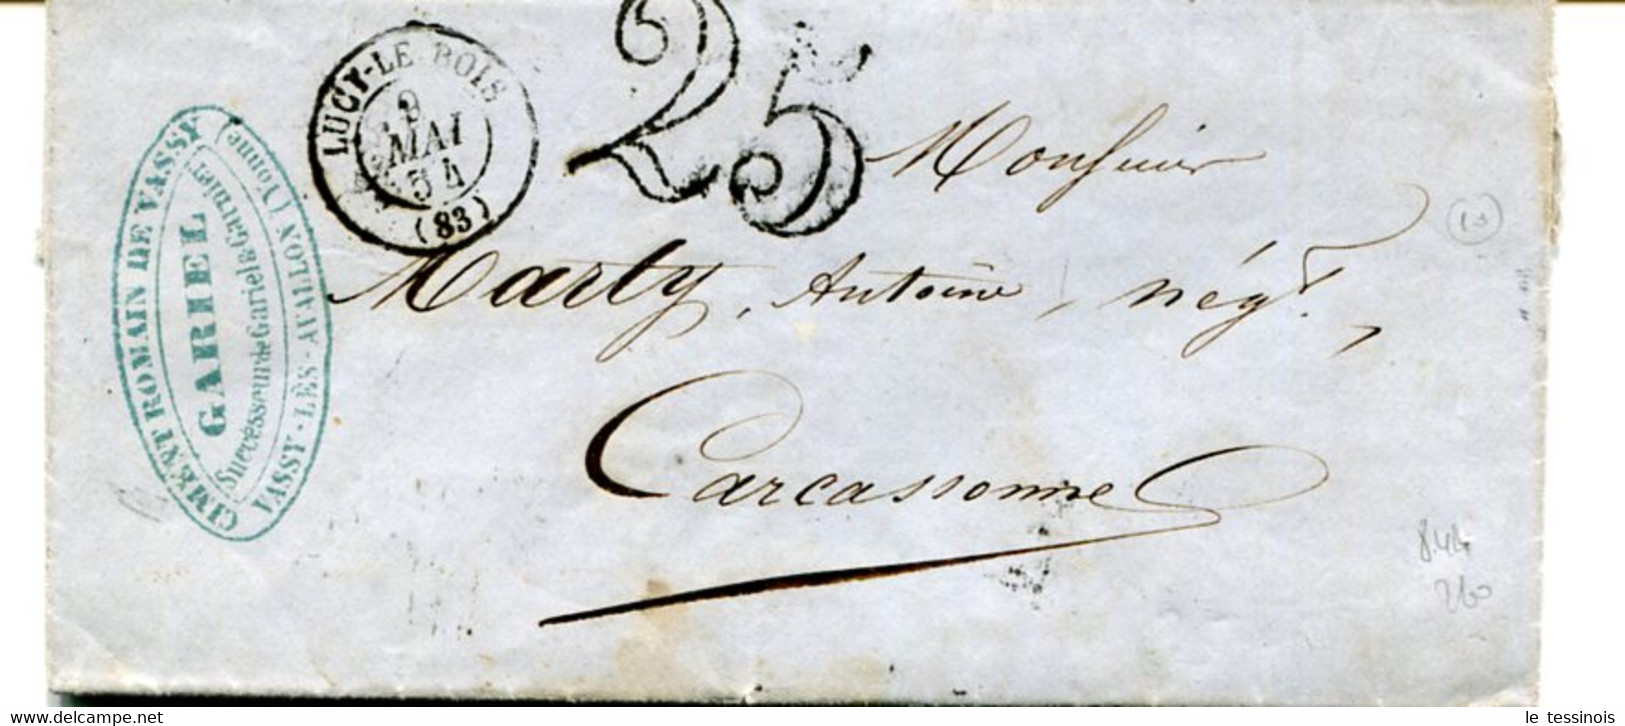 LUCY-LE BOIS
9
MAI
54
(83)
25
CIMENT ROMAIN DE VASSY
GARIEL
Successeur de Gariel & Garnier
VASSY-LÈS-AVALLON (Yonne)
Monsieur
Marty, Antoine, négt,
Carcassonne
844
260
le tessinois